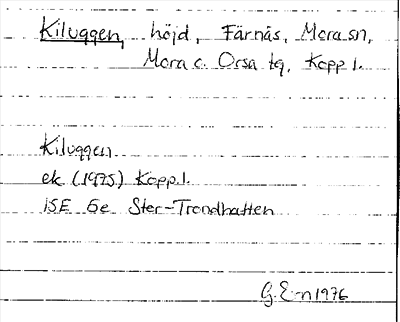 Kiluggen, höjd, Färnäs, Mora sn,
Mora o. Orsa tg, Kopp l.
Kiluggen
ek (1975) Kopp.l.
15E 6e Ster-Trondhatten
G. E-n 1976